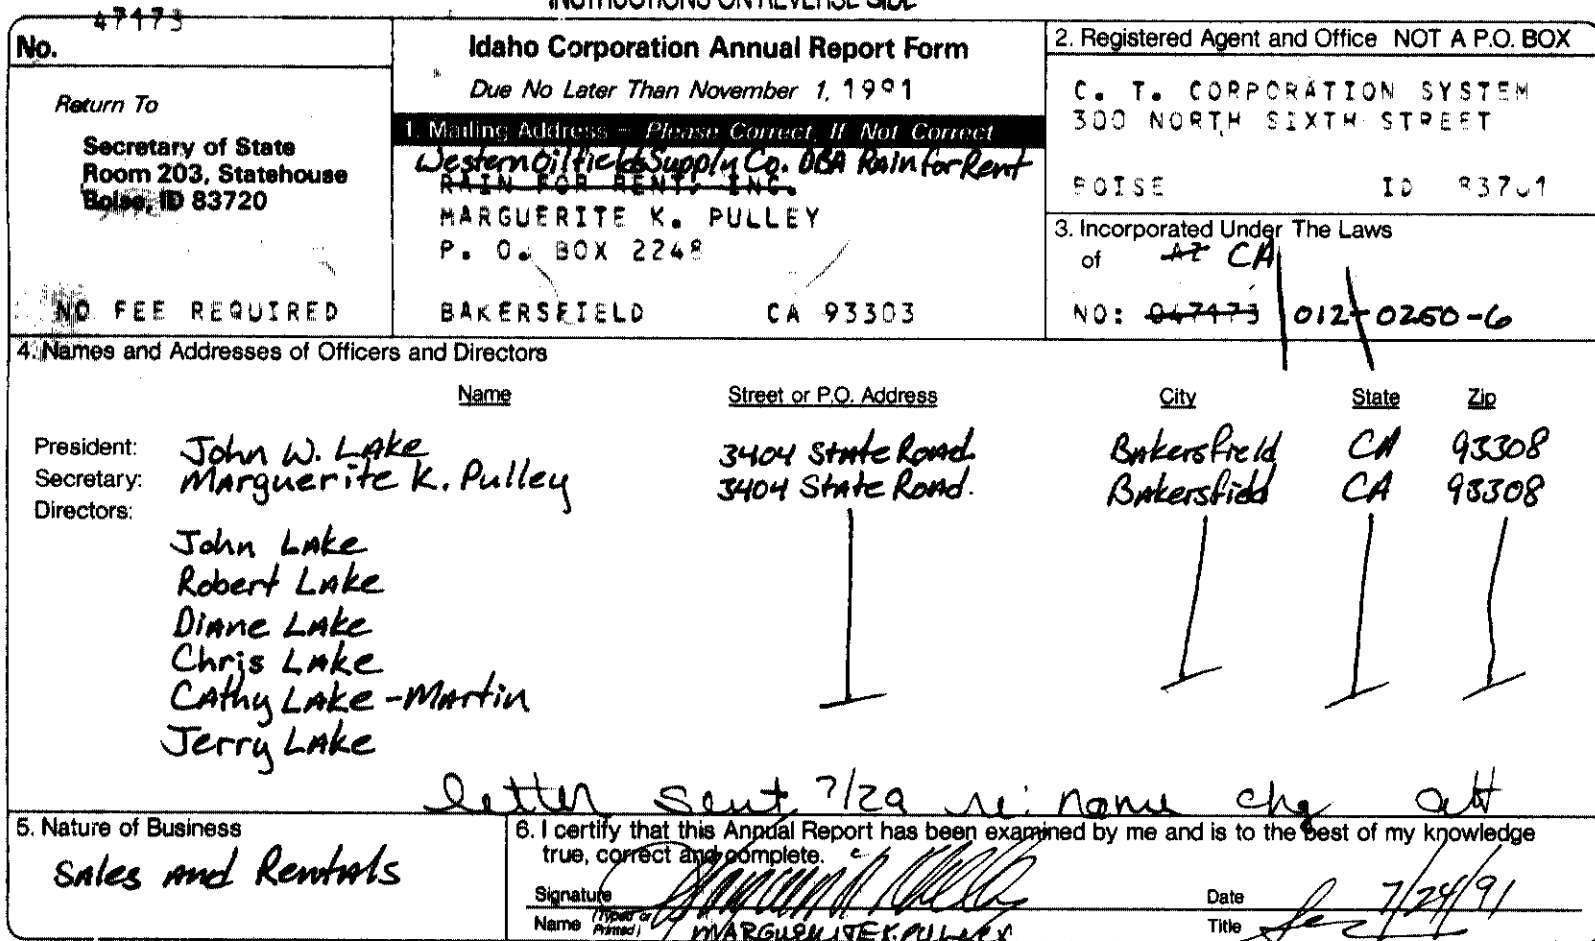 INSTRUCTIONS ON REVERSE SIDE
47473
No.
Return To
Secretary of State
Room 203, Statehouse
Boise, ID 83720
NO FEE REQUIRED
Idaho Corporation Annual Report Form
Due No Later Than November 1, 1991
1. Mailing Address - Please Correct, If Not Correct
Western Oilfields Supply Co. DBA Rain for Rent
RAIN FOR RENT, INC.
MARGUERITE K. PULLEY
P. O. BOX 2248
BAKERSFIELD CA 93303
2. Registered Agent and Office NOT A P.O. BOX
C. T. CORPORATION SYSTEM
300 NORTH SIXTH STREET
BOISE ID 83701
3. Incorporated Under The Laws
of AZ CA
NO: 047473 012-0250-6
4. Names and Addresses of Officers and Directors
Name Street or P.O. Address City State Zip
President: John W. Lake 3404 State Road. Bakersfield CA 93308
Secretary: Marguerite K. Pulley 3404 State Road. Bakersfield CA 93308
Directors:
John Lake
Robert Lake
Diane Lake
Chris Lake
Cathy Lake-Martin
Jerry Lake
letter sent 7/29 re: name chg att
5. Nature of Business
Sales and Rentals
6. I certify that this Annual Report has been examined by me and is to the best of my knowledge
true, correct and complete.
Signature Date 7/24/91
Name (Typed or Printed) MARGUERITE K. PULLEY Title